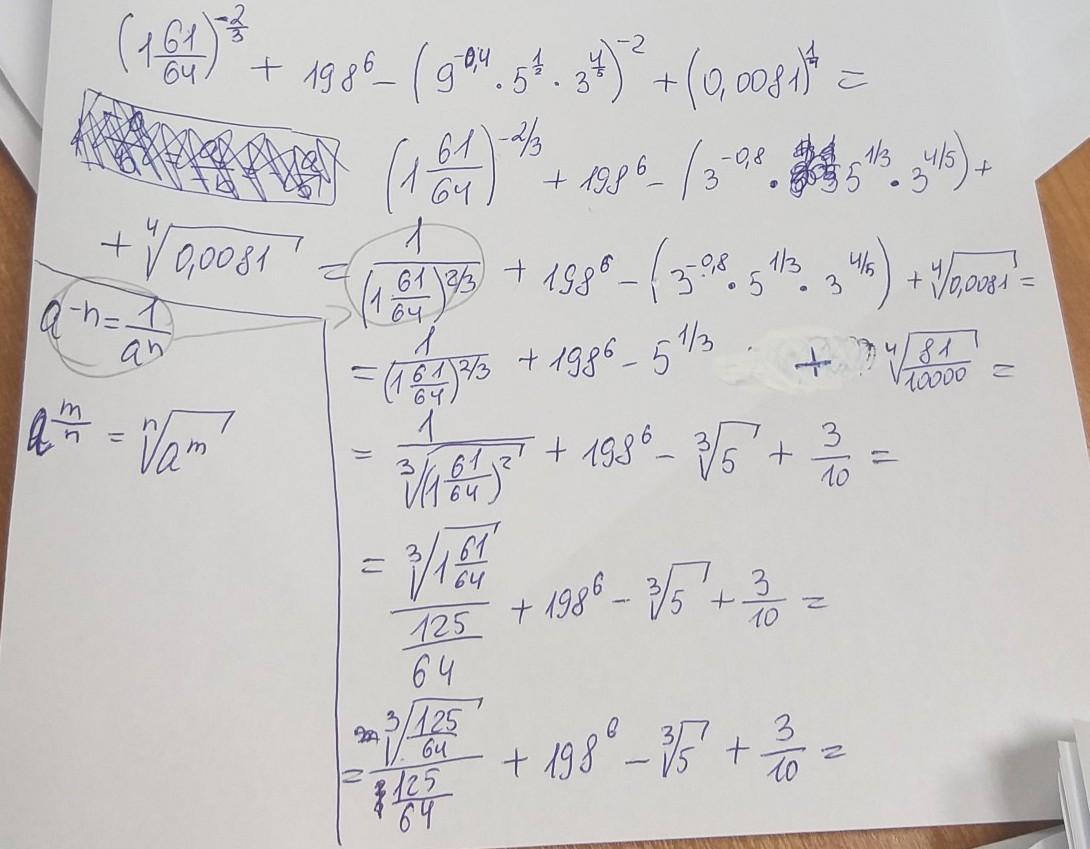 (1 61/64)^(-2/3) + 198^6 - (9^(-0,4) · 5^(1/2) · 3^(4/5))^(-2) + (0,0081)^(1/4) =
(1 61/64)^(-2/3) + 198^6 - (3^(-0,8) · 5^(1/3) · 3^(4/5)) +
+ ⁴√0,0081 = 1/(1 61/64)^(2/3) + 198^6 - (3^(-0,8) · 5^(1/3) · 3^(4/5)) + ⁴√0,0081 =
a^(-n) = 1/a^n
= 1/(1 61/64)^(2/3) + 198^6 - 5^(1/3) + ⁴√(81/10000) =
a^(m/n) = ⁿ√a^m
= 1/³√(1 61/64)^2 + 198^6 - ³√5 + 3/10 =
= ³√(1 61/64) / (125/64) + 198^6 - ³√5 + 3/10 =
= ³√(125/64) / (125/64) + 198^6 - ³√5 + 3/10 =